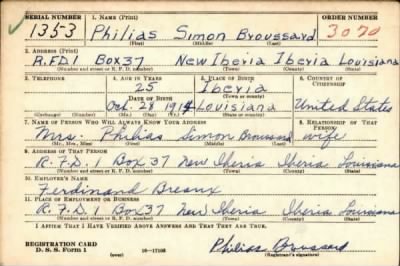 SERIAL NUMBER 1. NAME (Print) ORDER NUMBER
1353 Philias Simon Broussard 3070
(First) (Middle) (Last)
2. ADDRESS (Print)
R.F.D.1 Box 37 New Iberia Iberia Louisiana
(Number and street or R. F. D. number) (Town) (County) (State)
3. TELEPHONE 4. AGE IN YEARS 5. PLACE OF BIRTH 6. COUNTRY OF CITIZENSHIP
25 Iberia
DATE OF BIRTH (Town or county)
Oct. 28 1914 Louisiana United States
(Exchange) (Number) (Mo.) (Day) (Yr.) (State or country)
7. NAME OF PERSON WHO WILL ALWAYS KNOW YOUR ADDRESS 8. RELATIONSHIP OF THAT PERSON
Mrs. Philias Simon Broussard wife
(Mr., Mrs., Miss) (First) (Middle) (Last)
9. ADDRESS OF THAT PERSON
R.F.D. 1 Box 37 New Iberia Iberia Louisiana
(Number and street or R. F. D. number) (Town) (County) (State)
10. EMPLOYER'S NAME
Ferdinand Breaux
11. PLACE OF EMPLOYMENT OR BUSINESS
R.F.D. 1 Box 37 New Iberia Iberia Louisiana
(Number and street or R. F. D. number) (Town) (County) (State)
I AFFIRM THAT I HAVE VERIFIED ABOVE ANSWERS AND THAT THEY ARE TRUE.
REGISTRATION CARD
D. S. S. Form 1 (over) Philias Broussard
(Registrant's signature)